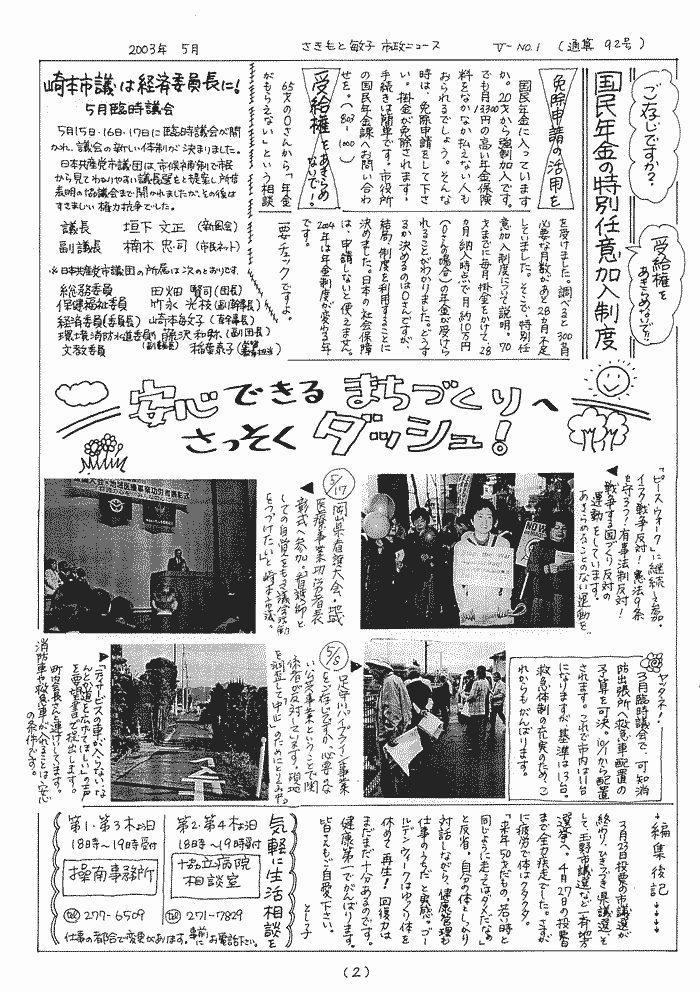 2003年 5月
さきもと敏子 市政ニュース
V-NO.1 (通算 92号)
ご存じですか?
国民年金の特別任意加入制度
受給権を
あきらめないで!!
免除申請の活用を
国民年金に入っています
か。20才から強制加入です。
でも月13300円の高い年金保険
料をなかなか払えない人も
おられるでしょう。そんな
時は、免除申請をして下さ
い。掛金が免除されます。
手続きは簡単です。市役所
の国民年金課へお問い合わ
せを。
受給権をあきらめ
ないで!
65才のOさんから「年金
がもらえない」という相談
を受けました。調べると300カ月
必要な月数があと28カ月不足
していました。そこで、特別任
意加入制度について説明。70
才までに毎月掛金をかけて、28
カ月納入時点で月約10万円
(Oさんの場合)の年金が受けら
れることがわかりました。どうす
るか決めるのはOさんですが、
結局、制度を利用することに
決めました。日本の社会保障
は、申請しないと使えません。
2004年は年金制度が変わる年
です。
要チェックですよ。
崎本市議は経済委員長に!
5月臨時議会
5月15日・16日・17日に臨時議会が開
かれ、議会の新しい体制が決まりました。
日本共産党市議団は、市候補制で市民
から見てわかりやすい議長選をと提案し、所信
表明の協議会まで開かれましたが、その後は
すさまじい権力抗争でした。
議長 垣下文正 (新風会)
副議長 楠木忠司 (市民ネット)
※日本共産党市議団の所属は次のとおりです。
総務委員 田畑賢司(団長)
保健福祉委員 竹永光枝(副幹事長)
経済委員(委員長) 崎本敏子(幹事長)
環境消防水道委員 藤沢和弥(副団長)
文教委員
安心できるまちづくりへ
さっそくダッシュ!
「ピースウォーク」に継続して参加。
イラク戦争反対!憲法9条
を守ろう!有事法制反対!
戦争する国づくり反対の
運動をしています。
あきらめることのない運動を。
5/17
岡山県看護大会・地域
医療事業功労者表
彰式へ参加。看護師と
しての自覚をもって議会活動
をつづけたいと崎本市議。
5/8
「デイサービスの車が入らないなんとか道を広げてほしい」の声
を要望書で提出します。
町内会長さんと連けいしてます。
消防車や救急車が入れることは、安心
の条件です。
ヤッタネ!
3月臨時議会で、可知消
防出張所へ救急車配置の
予算を可決。10/1から配置
されます。これで市内は11台
になりますが、基準は13台。
救急体制の充実のため、こ
れからもがんばります。
編集後記
3月23日投票の市議選が
終わり、ひきつづき県議選、そ
して玉野市議選など一斉地方
選挙へ。4月27日の投票日
まで全力疾走でした。さすが
に疲労で体はクタクタ。
「来年50才だもの。若い時と
同じように走ってはダメだな」
と反省。自分の体としっかり
対話しながら、健康管理も
仕事のうちだと実感。ゴー
ルデンウィークはゆっくり体を
休めて再生!回復力は
まだまだ十分あるのです。
健康第一でがんばります。
皆さんもご自愛下さい。
とし子
気軽に生活相談を
第2・第4木よう日
18時〜19時受付
協立病院
相談室
TEL 271-7829
第1・第3木よう日
18時〜19時受付
操南事務所
TEL 277-6509
仕事の都合で変更があります。事前にお電話下さい。
(2)